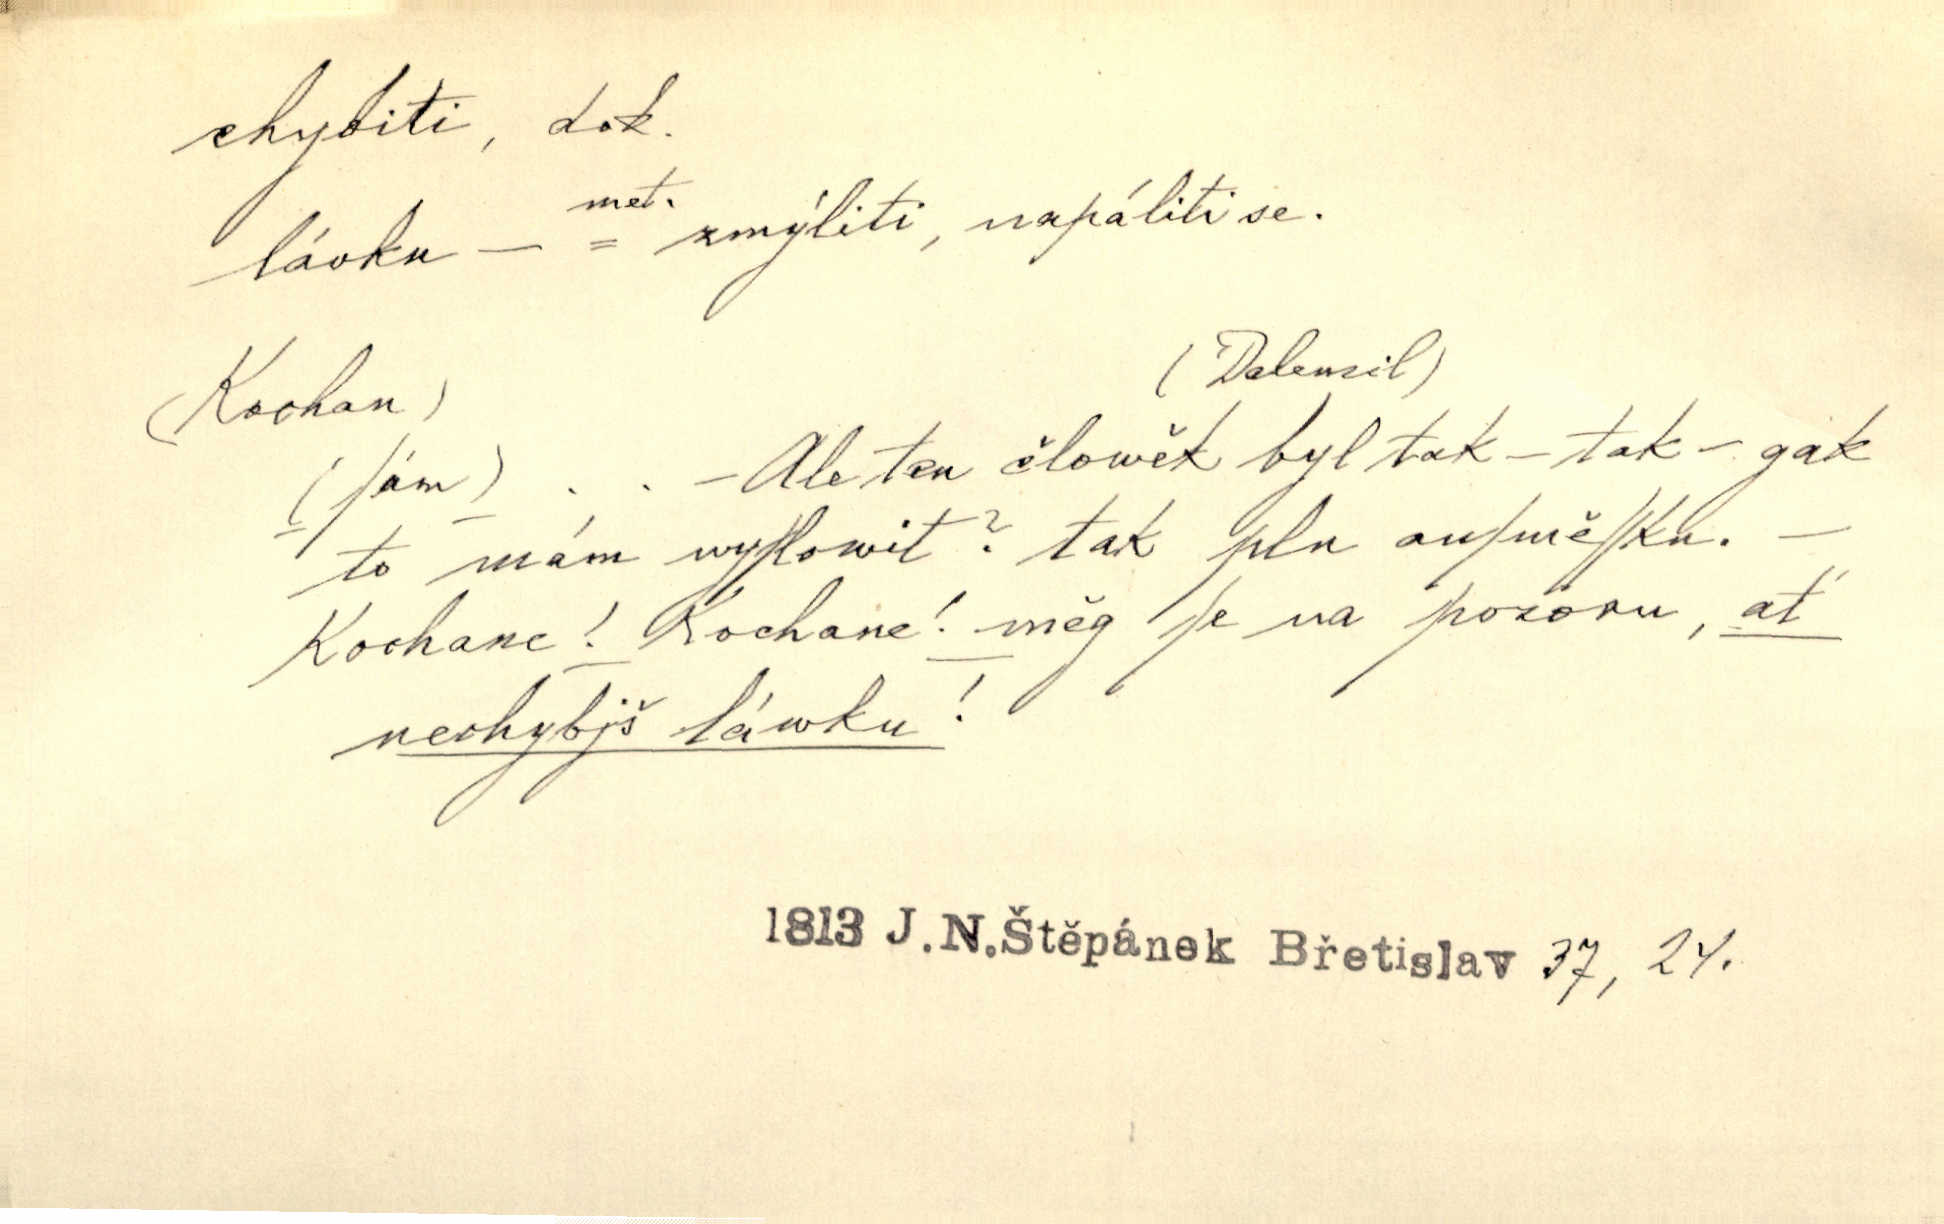 chybiti, dok.
met.
lávku — = zmýliti, napáliti se.
(Kochan) (Dalemil)
(ſám) . . — Ale ten člowěk byl tak — tak — gak
to mám wyſlowit? tak pln auſměſſku. —
Kochane! Kochane! měg ſe na pozoru, ať
nechybjš láwku!
1813 J.N.Štěpánek Břetislav 37, 24.